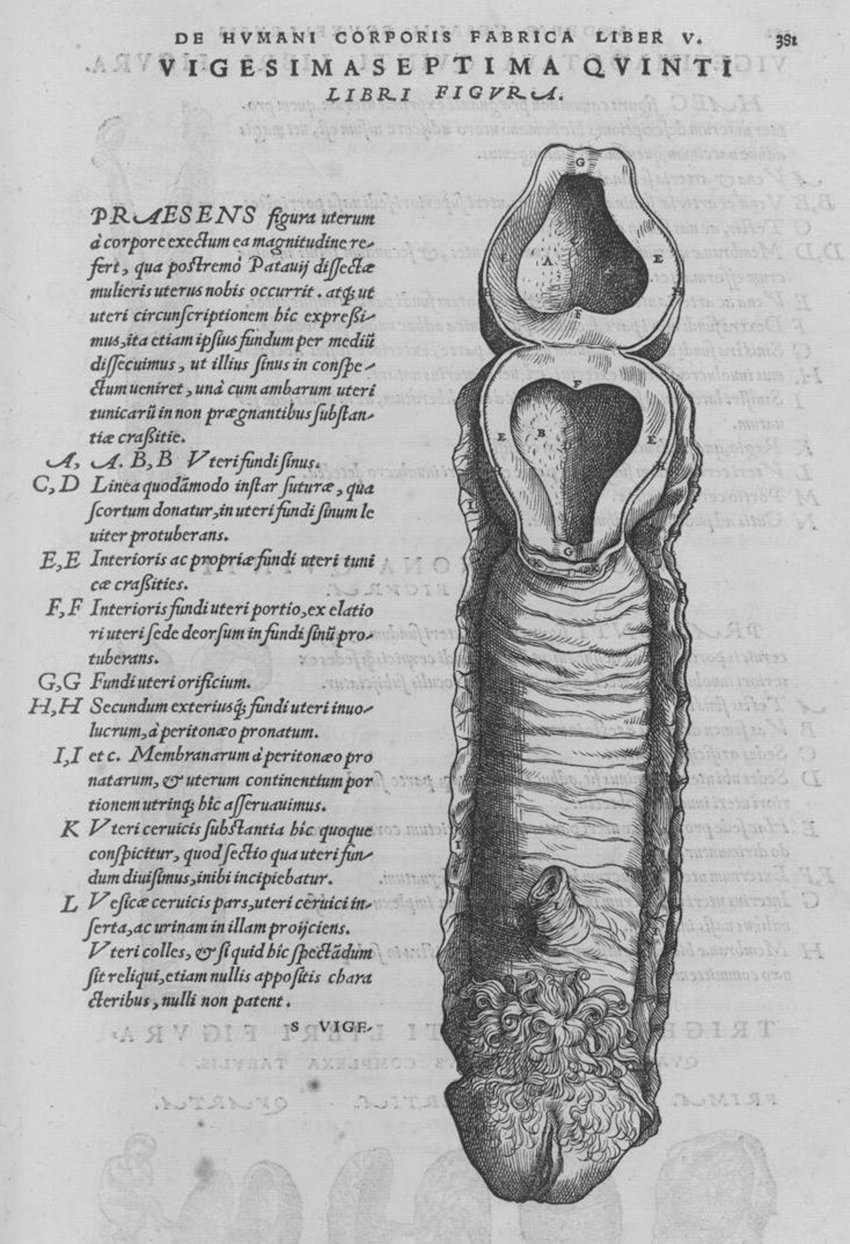 DE HVMANI CORPORIS FABRICA LIBER V. 381
VIGESIMASEPTIMA QVINTI
LIBRI FIGVRA.
PRAESENS figura uterum
à corpore exectum ea magnitudine re-
fert, qua postremò Patauij dissectæ
mulieris uterus nobis occurrit. atq́; ut
uteri circunscriptionem hic expreßi-
mus, ita etiam ipsius fundum per mediũ
dissecuimus, ut illius sinus in conspe-
ctum ueniret, unà cum ambarum uteri
tunicarũ in non prægnantibus substan-
tiæ craßitie.
A, A. B, B Vteri fundi sinus.
C, D Linea quodãmodo instar suturæ, qua
scortum donatur, in uteri fundi sinum le
uiter protuberans.
E, E Interioris ac propriæ fundi uteri tuni
cæ craßities.
F, F Interioris fundi uteri portio, ex elatio
ri uteri sede deorsum in fundi sinũ pro-
tuberans.
G, G Fundi uteri orificium.
H, H Secundum exteriusq́; fundi uteri inuo-
lucrum, à peritonæo pronatum.
I, I et c. Membranarum à peritonæo pro
natarum, & uterum continentium por
tionem utrinq; hic asseruauimus.
K Vteri ceruicis substantia hic quoque
conspicitur, quod sectio qua uteri fun-
dum diuisimus, inibi incipiebatur.
L Vesicæ ceruicis pars, uteri ceruici in-
serta, ac urinam in illam proijciens.
Vteri colles, & si quid hic spectãdum
sit reliqui, etiam nullis appositis chara
cteribus, nulli non patent.
S VIGE-
G
A
E
F
F
E
B
E
G
L